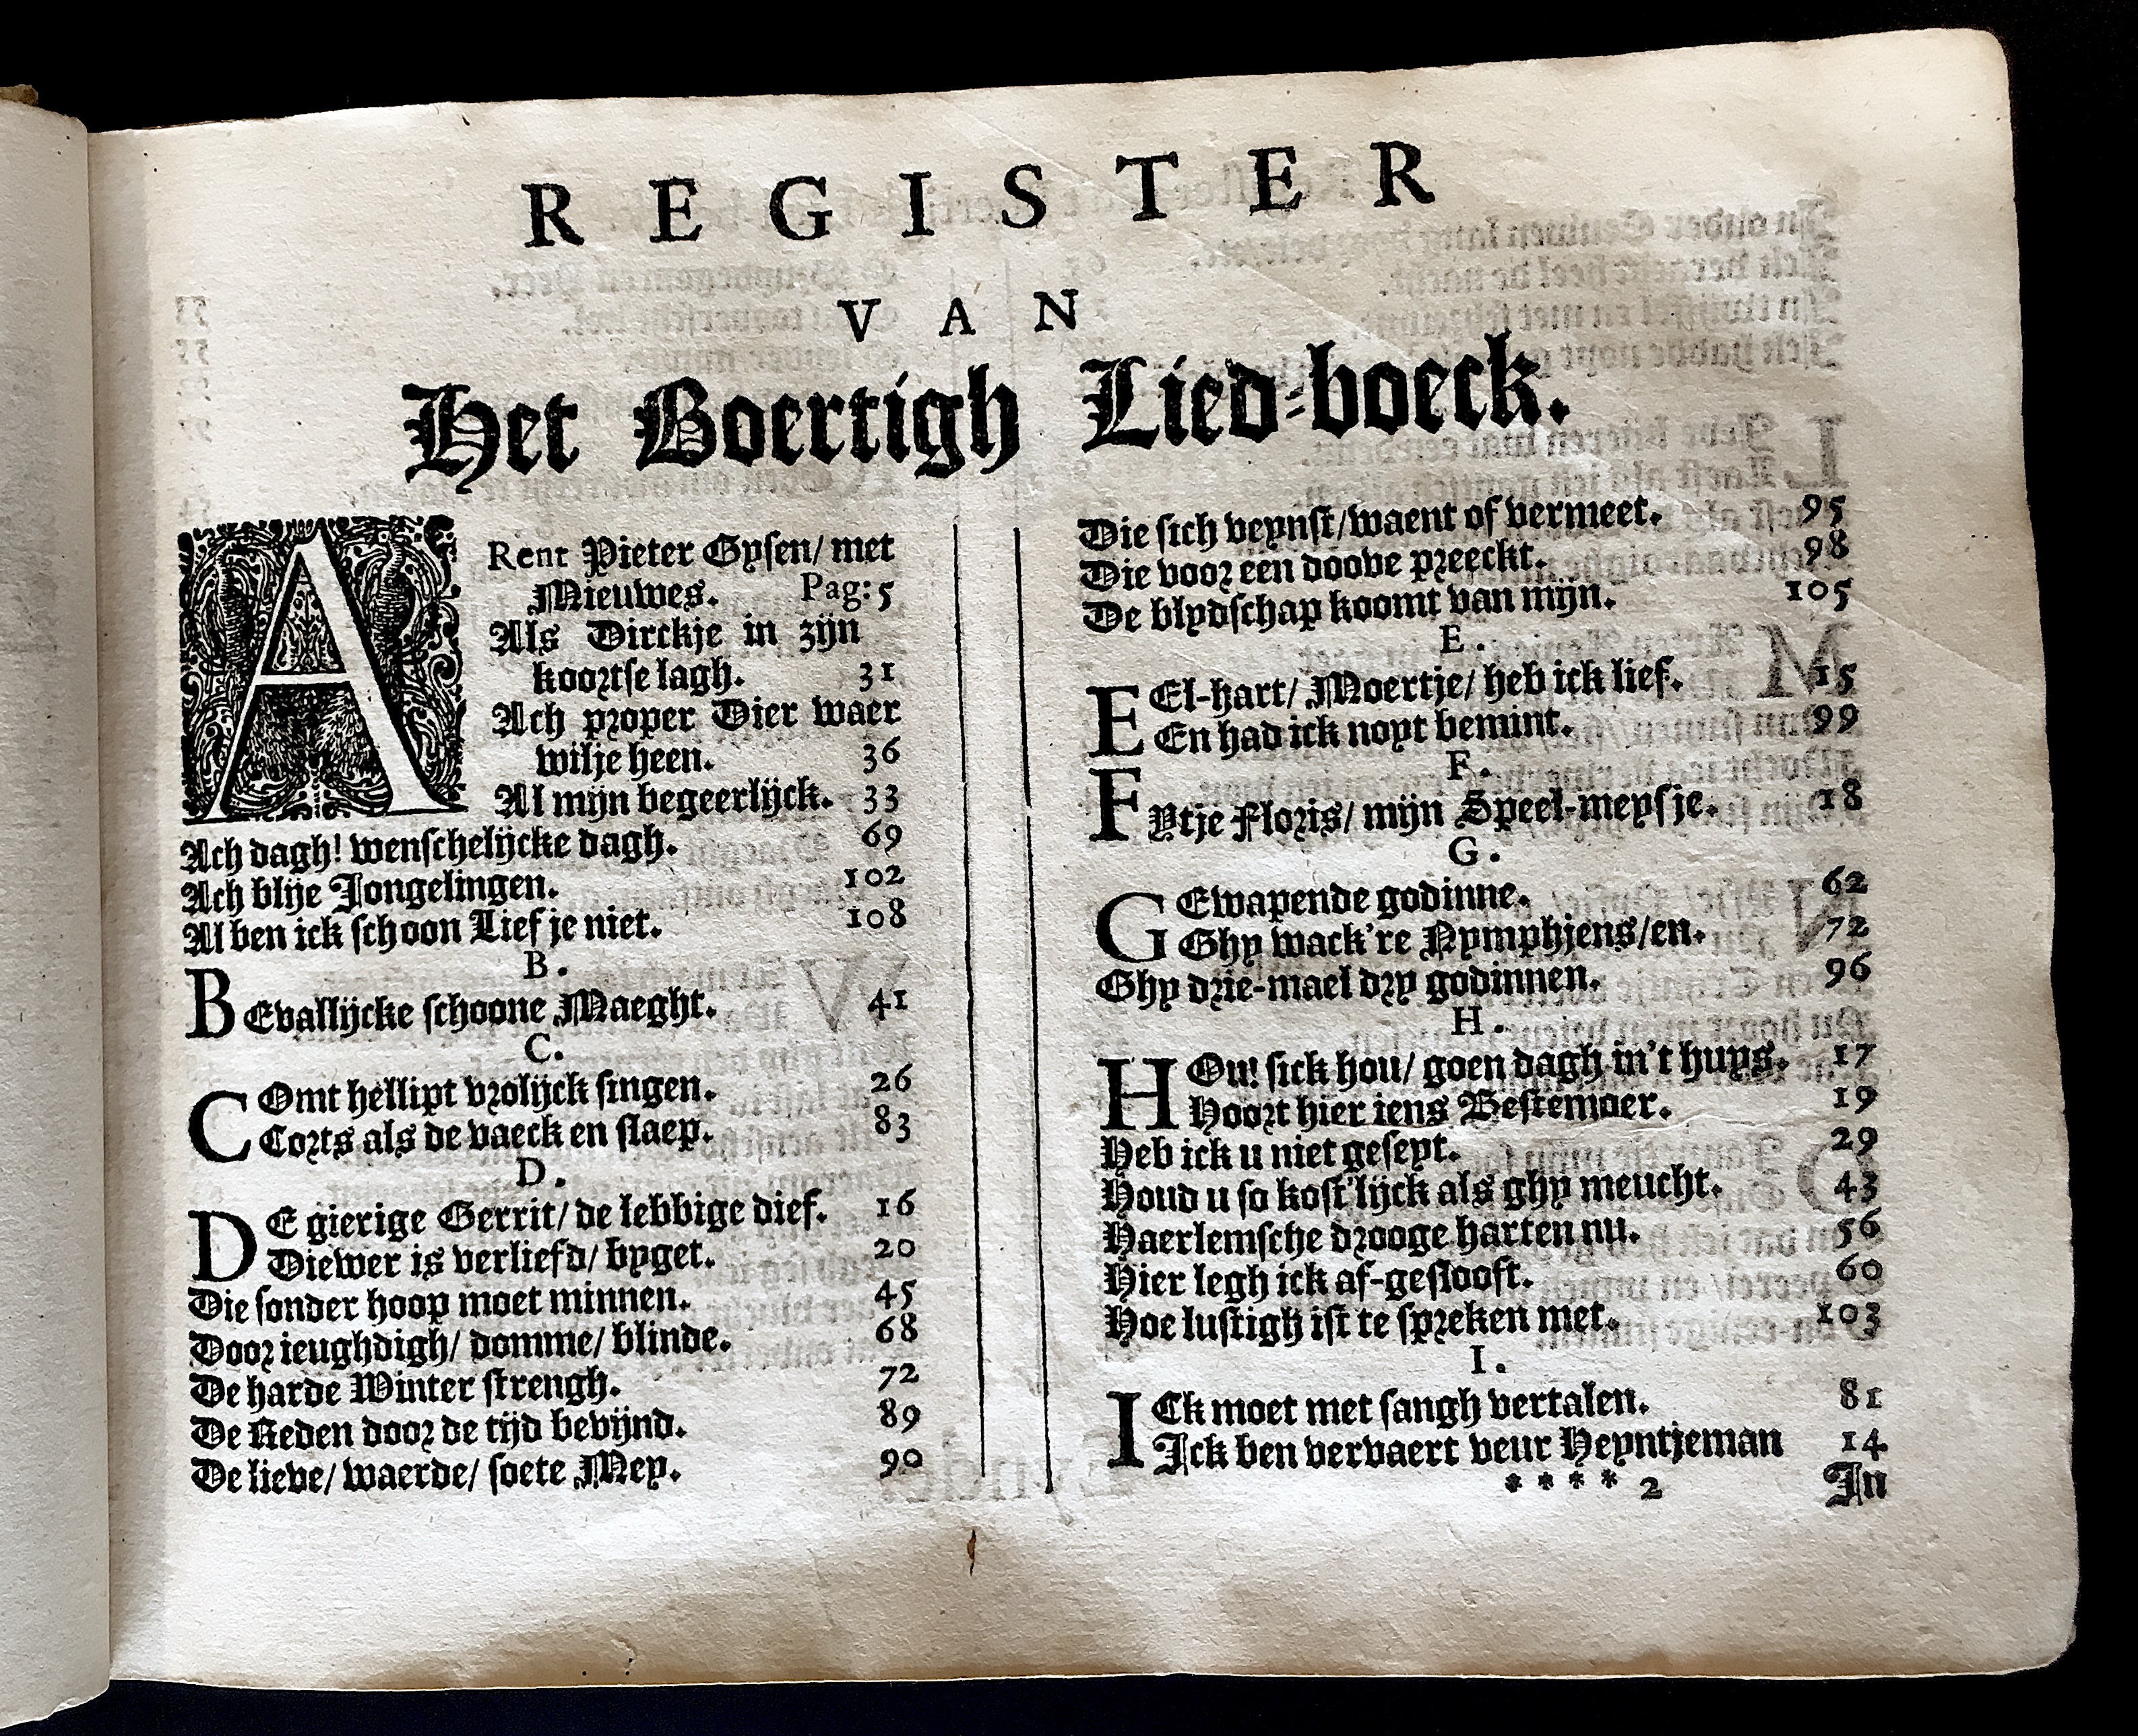 REGISTER
VAN
Het Boertigh Lied-boeck.
ARent Pieter Gysen/ met
Mieuwes. Pag: 5
Als Dirckje in zijn
koortse lagh. 31
Ach proper Dier waer
wilje heen. 36
Al mijn begeerlijck. 33
Ach dagh! wenschelijcke dagh. 69
Ach blije Jongelingen. 102
Al ben ick schoon Lief je niet. 108
B.
BEvallijcke schoone Maeght. 41
C.
COmt hellipt vrolijck singen. 26
Corts als de vaeck en slaep. 83
D.
DE gierige Gerrit/ de lebbige dief. 16
Diewer is verliefd/ byget. 20
Die sonder hoop moet minnen. 45
Door ieughdigh/ domme/ blinde. 68
De harde Winter strengh. 72
De Reden door de tijd bevijnd. 89
De lieve/ waerde/ soete Mey. 90
Die sich veynst/waent of vermeet. 95
Die voor een doove preeckt. 98
De blydschap koomt van mijn. 105
E.
EEl-hart/ Moertje/ heb ick lief. 15
En had ick noyt bemint. 99
F.
FYtje Floris/ mijn Speel-meysje. 18
G.
GEwapende godinne. 62
Ghy wack're Nymphjens/en. 72
Ghy drie-mael dry godinnen. 96
H.
HOu! sick hou/ goen dagh in't huys. 17
Hoort hier iens Bestemoer. 19
Heb ick u niet geseyt. 29
Houd u so kost'lijck als ghy meucht. 43
Haerlemsche drooge harten nu. 56
Hier legh ick af-geslooft. 60
Hoe lustigh ist te spreken met. 103
I.
ICk moet met sangh vertalen. 81
Ick ben vervaert veur Heyntjeman 14
* * * * 2 In